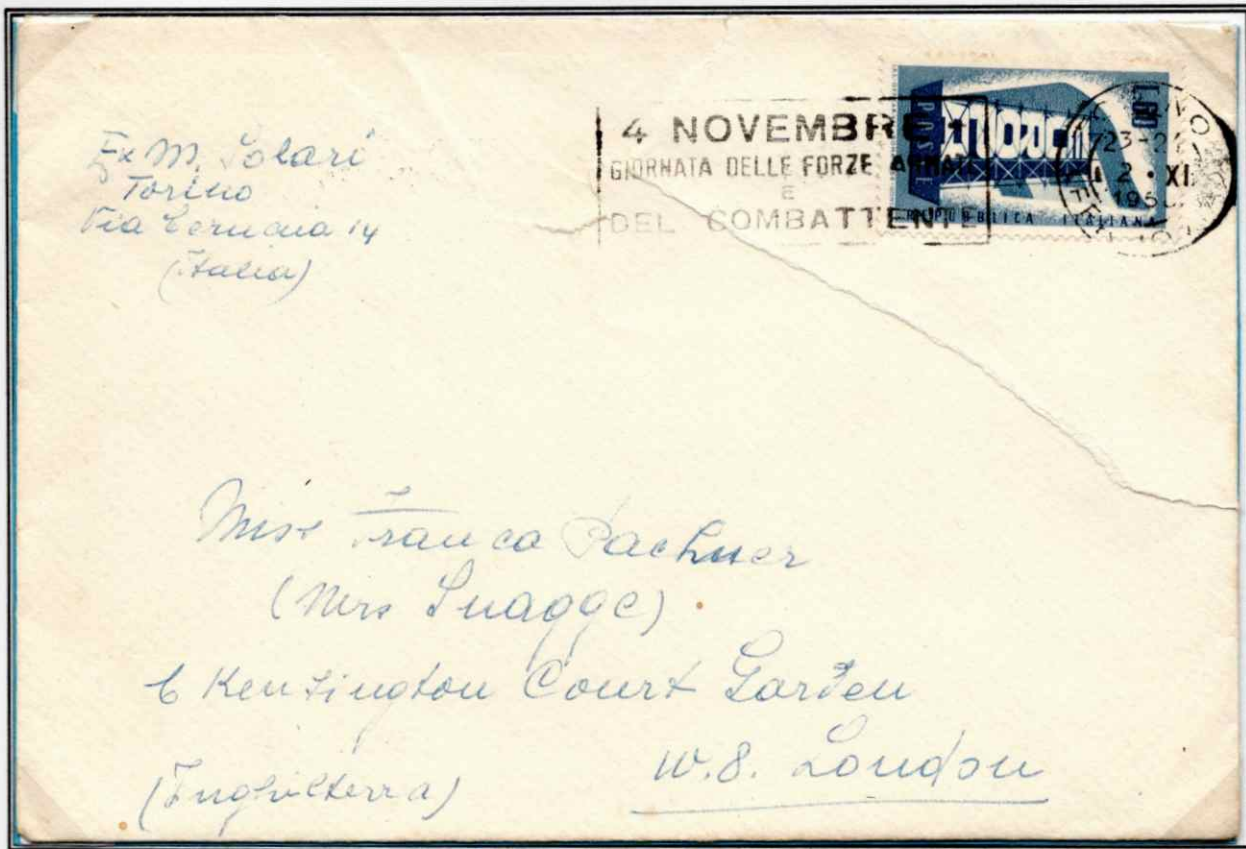 Ex M. Solari
Torino
Via Cernaia 14
(Italia)
4 NOVEMBRE
GIORNATA DELLE FORZE ARMATE
E
DEL COMBATTENTE
POSTE
L. 60
EUROPA
REPUBBLICA ITALIANA
23-24
2 · XI
Miss Franca Pachner
(Mrs Snagge)
6 Kensington Court Garden
W.8. London
(Inghilterra)